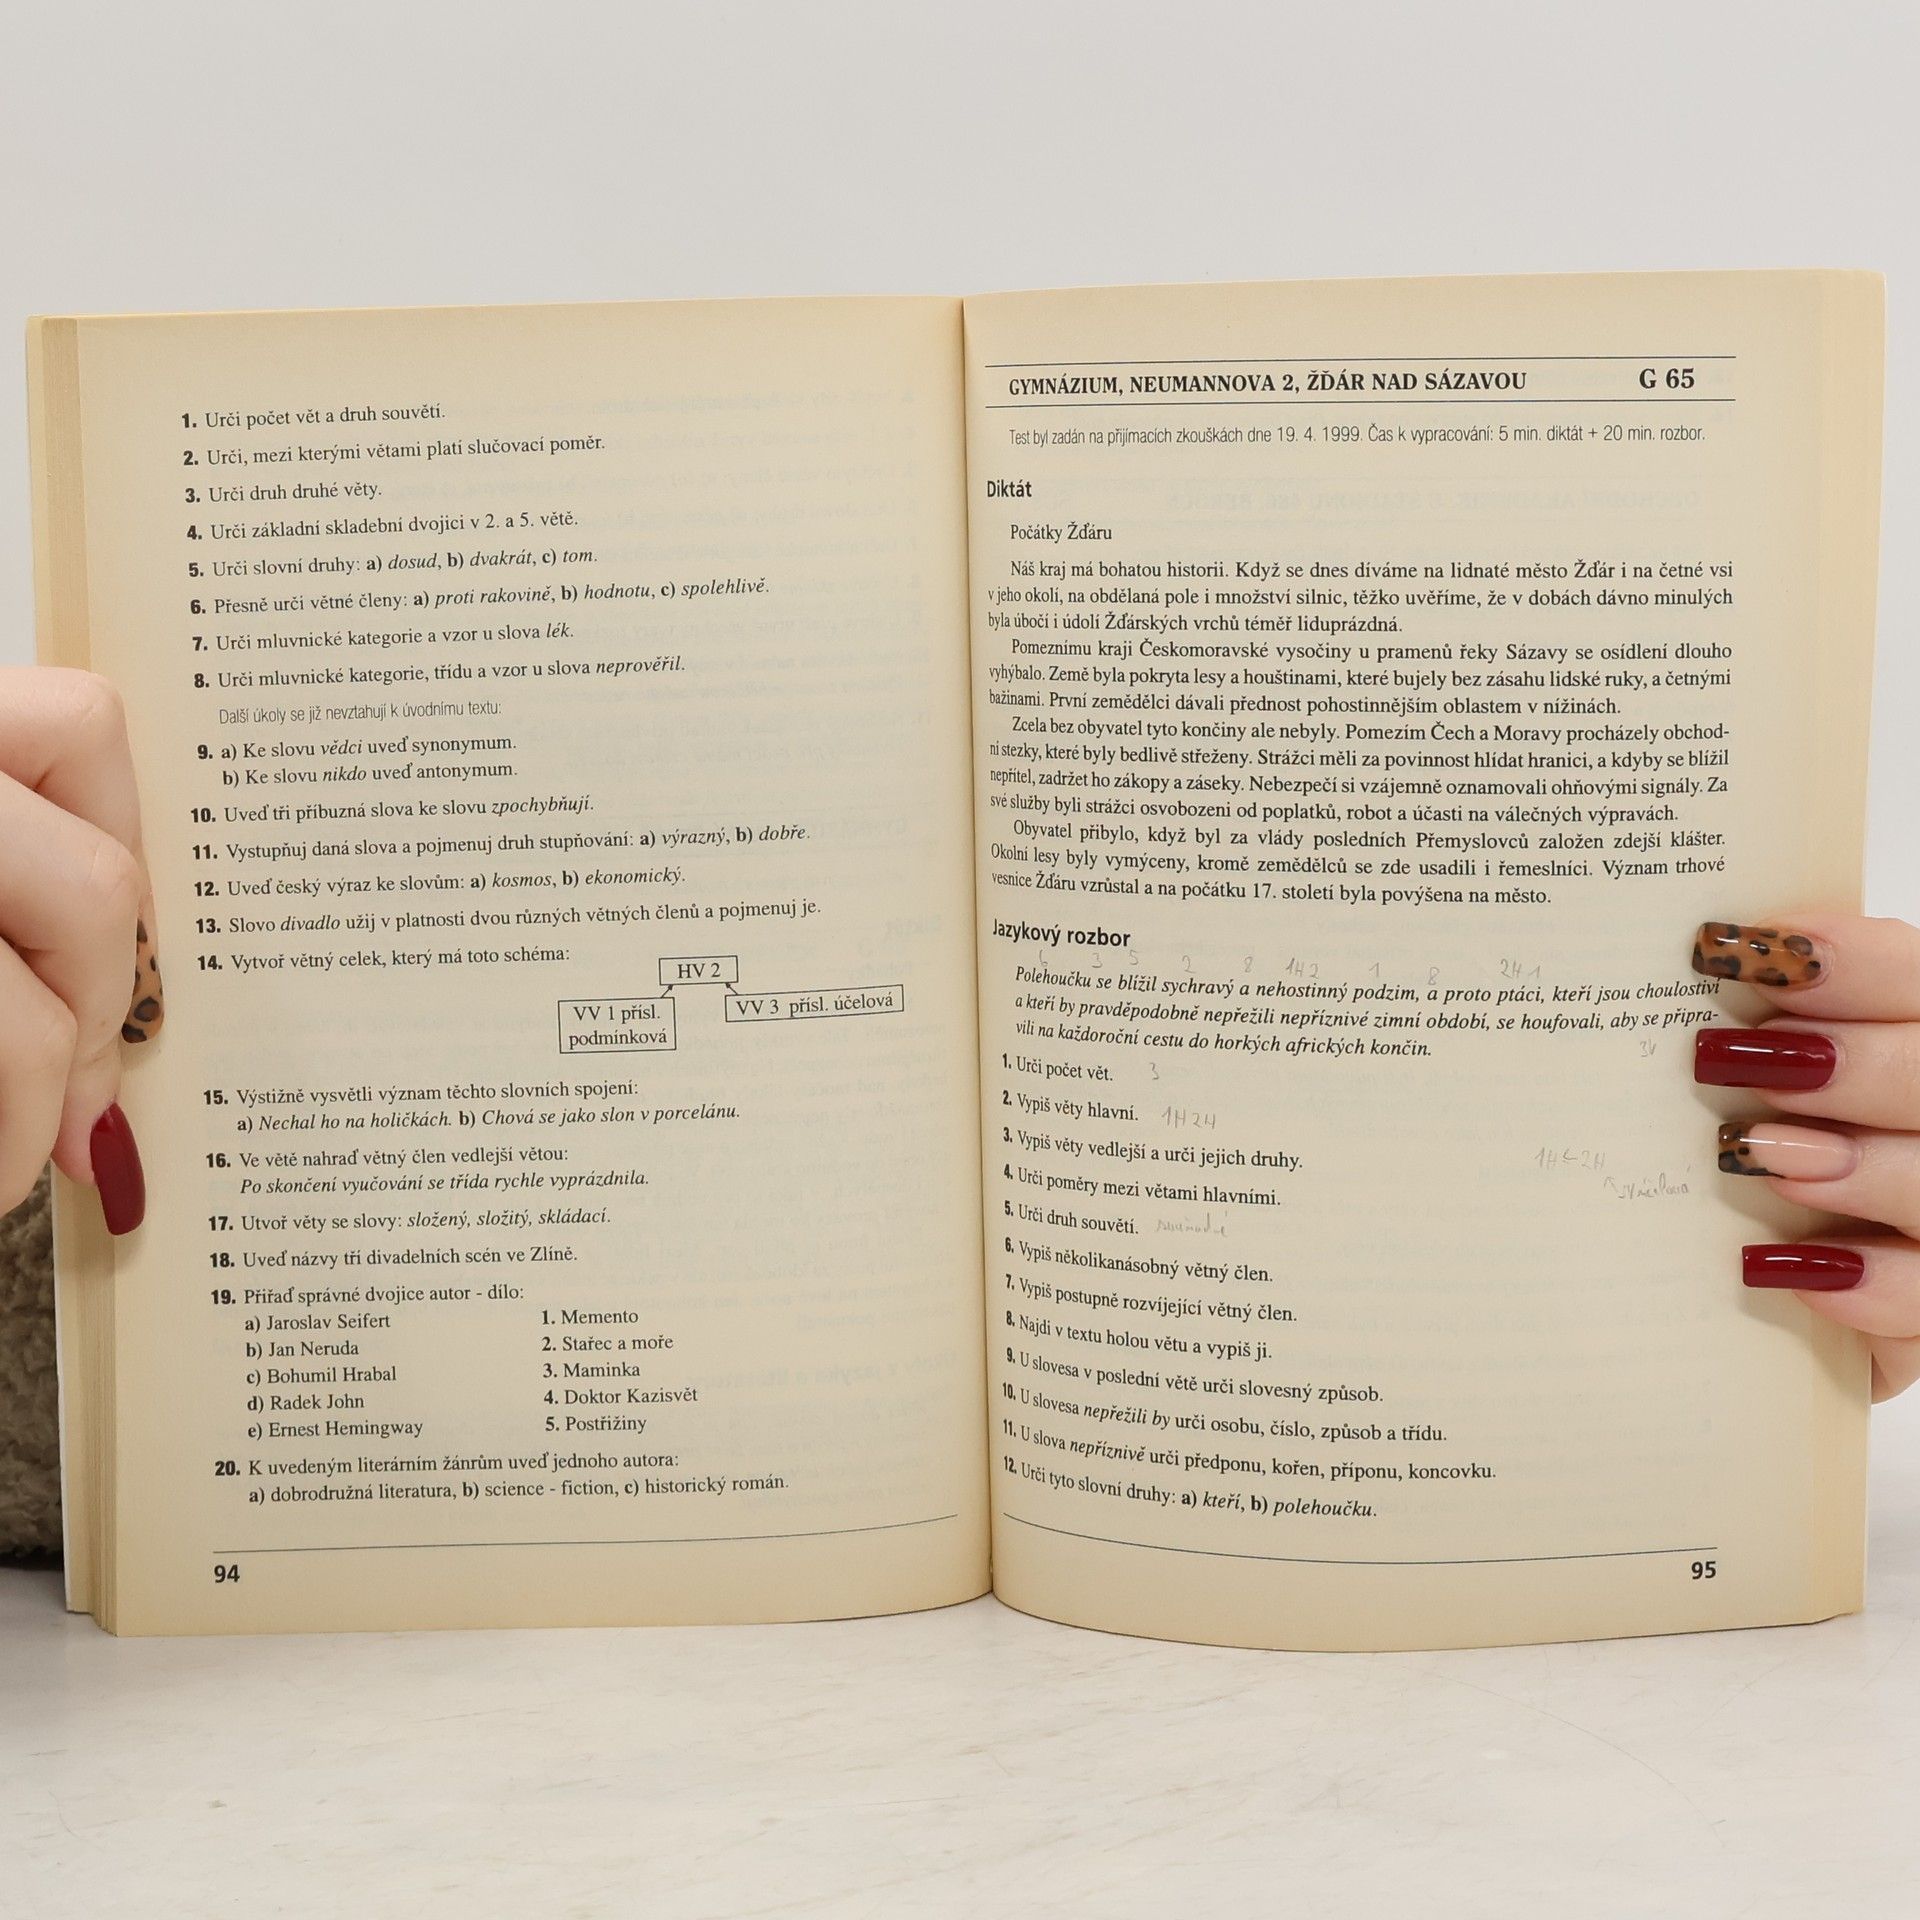 1. Urči počet vět a druh souvětí.
2. Urči, mezi kterými větami platí slučovací poměr.
3. Urči druh druhé věty.
4. Urči základní skladební dvojici v 2. a 5. větě.
5. Urči slovní druhy: a) dosud, b) dvakrát, c) tom.
6. Přesně urči větné členy: a) proti rakovině, b) hodnotu, c) spolehlivě.
7. Urči mluvnické kategorie a vzor u slova lék.
8. Urči mluvnické kategorie, třídu a vzor u slova neprověřil.
Další úkoly se již nevztahují k úvodnímu textu:
9. a) Ke slovu vědci uveď synonymum.
b) Ke slovu nikdo uveď antonymum.
10. Uveď tři příbuzná slova ke slovu zpochybňují.
11. Vystupňuj daná slova a pojmenuj druh stupňování: a) výrazný, b) dobře.
12. Uveď český výraz ke slovům: a) kosmos, b) ekonomický.
13. Slovo divadlo užij v platnosti dvou různých větných členů a pojmenuj je.
14. Vytvoř větný celek, který má toto schéma:
HV 2
VV 1 přísl.
podmínková
VV 3 přísl. účelová
15. Výstižně vysvětli význam těchto slovních spojení:
a) Nechal ho na holičkách. b) Chová se jako slon v porcelánu.
16. Ve větě nahraď větný člen vedlejší větou:
Po skončení vyučování se třída rychle vyprázdnila.
17. Utvoř věty se slovy: složený, složitý, skládací.
18. Uveď názvy tří divadelních scén ve Zlíně.
19. Přiřaď správné dvojice autor - dílo:
a) Jaroslav Seifert 1. Memento
b) Jan Neruda 2. Stařec a moře
c) Bohumil Hrabal 3. Maminka
d) Radek John 4. Doktor Kazisvět
e) Ernest Hemingway 5. Postřižiny
20. K uvedeným literárním žánrům uveď jednoho autora:
a) dobrodružná literatura, b) science - fiction, c) historický román.
94
GYMNÁZIUM, NEUMANNOVA 2, ŽĎÁR NAD SÁZAVOU G 65
Test byl zadán na přijímacích zkouškách dne 19. 4. 1999. Čas k vypracování: 5 min. diktát + 20 min. rozbor.
Diktát
Počátky Žďáru
Náš kraj má bohatou historii. Když se dnes díváme na lidnaté město Žďár i na četné vsi
v jeho okolí, na obdělaná pole i množství silnic, těžko uvěříme, že v dobách dávno minulých
byla úbočí i údolí Žďárských vrchů téměř liduprázdná.
Pomeznímu kraji Českomoravské vysočiny u pramenů řeky Sázavy se osídlení dlouho
vyhýbalo. Země byla pokryta lesy a houštinami, které bujely bez zásahu lidské ruky, a četnými
bažinami. První zemědělci dávali přednost pohostinnějším oblastem v nížinách.
Zcela bez obyvatel tyto končiny ale nebyly. Pomezím Čech a Moravy procházely obchod-
ní stezky, které byly bedlivě střeženy. Strážci měli za povinnost hlídat hranici, a kdyby se blížil
nepřítel, zadržet ho zákopy a záseky. Nebezpečí si vzájemně oznamovali ohňovými signály. Za
své služby byli strážci osvobozeni od poplatků, robot a účasti na válečných výpravách.
Obyvatel přibylo, když byl za vlády posledních Přemyslovců založen zdejší klášter.
Okolní lesy byly vymýceny, kromě zemědělců se zde usadili i řemeslníci. Význam trhové
vesnice Žďáru vzrůstal a na počátku 17. století byla povýšena na město.
Jazykový rozbor
6 3 5 2 8 1H2 1 8 2H1
Polehoučku se blížil sychravý a nehostinný podzim, a proto ptáci, kteří jsou choulostiví
a kteří by pravděpodobně nepřežili nepříznivé zimní období, se houfovali, aby se připra-
vili na každoroční cestu do horkých afrických končin.
3V
1. Urči počet vět. 3
2. Vypiš věty hlavní. 1H 2H
3. Vypiš věty vedlejší a urči jejich druhy.
1H 2H
4. Urči poměry mezi větami hlavními.
5. Urči druh souvětí.
6. Vypiš několikanásobný větný člen.
7. Vypiš postupně rozvíjející větný člen.
8. Najdi v textu holou větu a vypiš ji.
9. U slovesa v poslední větě urči slovesný způsob.
10. U slovesa nepřežili by urči osobu, číslo, způsob a třídu.
11. U slova nepříznivě urči předponu, kořen, příponu, koncovku.
12. Urči tyto slovní druhy: a) kteří, b) polehoučku.
95